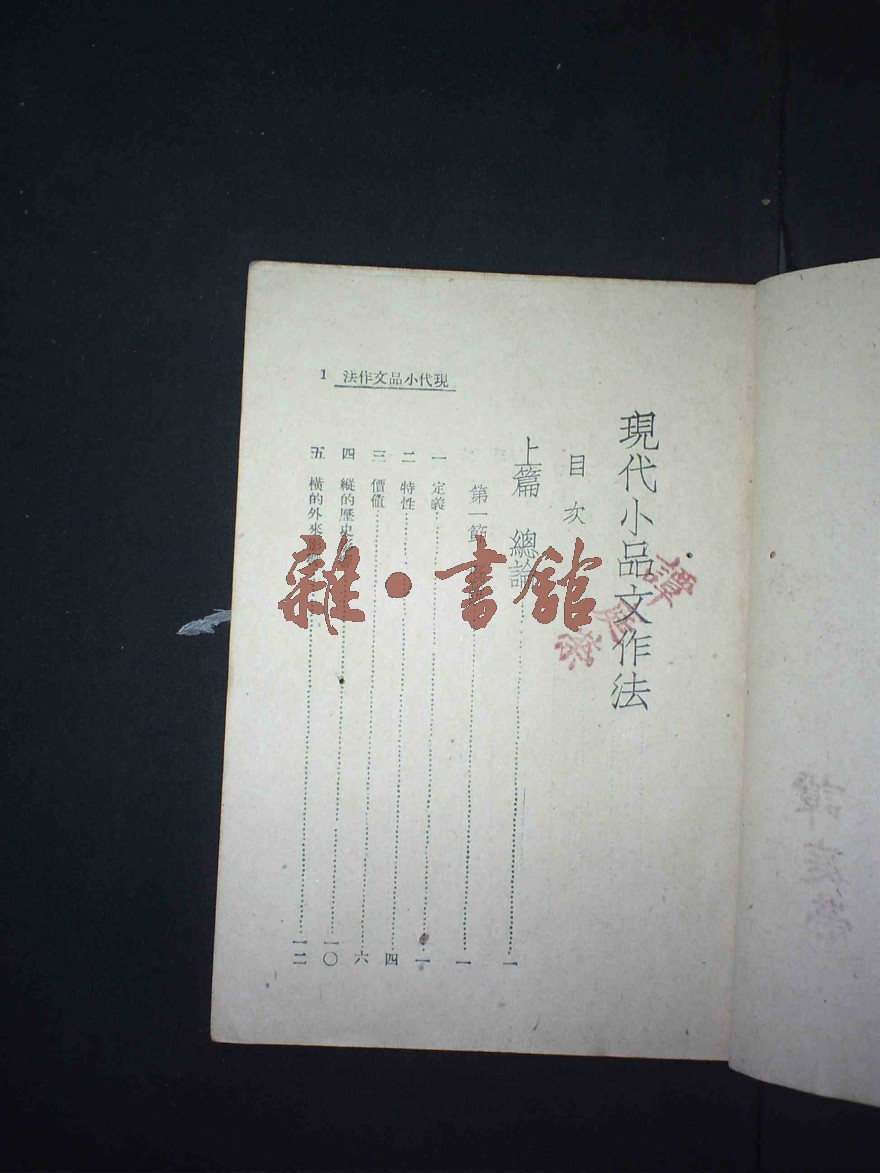 現代小品文作法
目次
上篇 總論 一
第一節 一
一 定義 一
二 特性 四
三 價值 六
四 縱的歷史 一〇
五 橫的外來影響 一二
法作文品小代現 1
雜·書館
譚